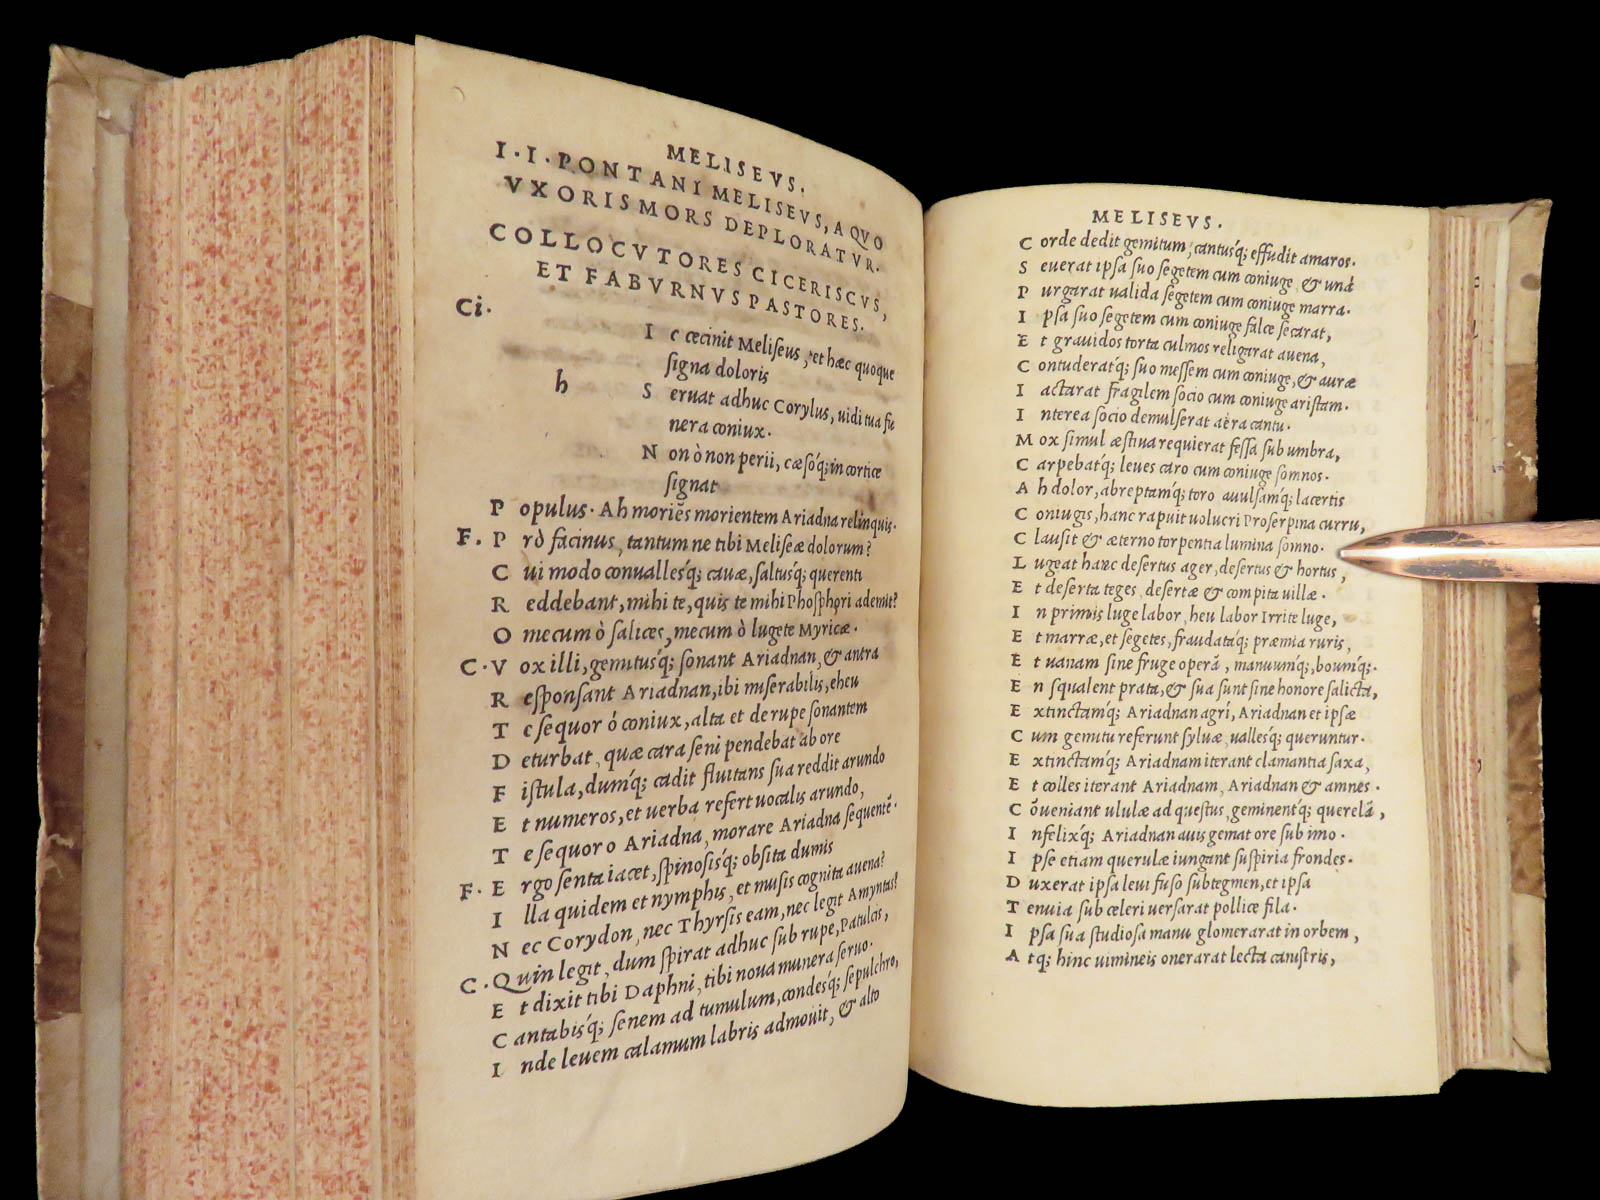 MELISEVS.
I. I. PONTANI MELISEVS, A QVO
VXORIS MORS DEPLORATVR.
COLLOCVTORES CICERISCVS,
ET FABVRNVS PASTORES.
Ci.
h
I c cecinit Meliseus, et hæc quoque
signa doloris
S eruat adhuc Corylus, uidi tua fu
nera coniux.
N on ò non perii, cæsoq́; in cortice
signat
P opulus. Ah moriẽs morientem Ariadna relinquis.
F. P rò facinus, tantum ne tibi Meliseæ dolorum?
C ui modo conualleśq; cauæ, saltusq́; querenti
R eddebant, mihi te, quis te mihi Phosphori ademit?
O mecum ò salices, mecum ò lugete Myricæ.
C. V ox illi, gemitusq́; sonant Ariadnan, & antra
R esponsant Ariadnan, ibi miserabilis, eheu
T e sequor ó coniux, alta et de rupe sonantem
D eturbat, quæ cara seni pendebat ab ore
F istula, dumq́; cadit fluitans sua reddit arundo
E t numeros, et uerba refert uocalis arundo,
T e sequor o Ariadna, morare Ariadna sequentẽ.
F. E rgo senta iacet, spinosisq́; obsita dumis
I lla quidem et nymphis, et musis cognita auena?
N ec Corydon, nec Thyrsis eam, nec legit Amyntas?
C. Quin legit, dum spirat adhuc sub rupe, Patulcis,
E t dixit tibi Daphni, tibi noua munera seruo.
C antabisq́; senem ad tumulum, condesq́; sepulchro,
I nde leuem calamum labris admouit, & alto
MELISEVS.
C orde dedit gemitum, cantusq́; effudit amaros.
S euerat ipsa suo segetem cum coniuge, & unà
P urgarat ualida segetem cum coniuge marra.
I psa suo segetem cum coniuge falce secarat,
E t grauidos torta culmos religarat auena,
C ontuderatq́; suo messem cum coniuge, & auræ
I actarat fragilem socio cum coniuge aristam.
I nterea socio demulserat aëra cantu.
M ox simul æstiua requierat fessa sub umbra,
C arpebatq́; leues caro cum coniuge somnos.
A h dolor, abreptamq́; toro auulsamq́; lacertis
C oniugis, hanc rapuit uolucri Proserpina curru,
C lausit & æterno torpentia lumina somno.
L ugeat hanc desertus ager, desertus & hortus,
E t deserta teges, desertæ & compita uillæ.
I n primis luge labor, heu labor Irrite luge,
E t marræ, et segetes, fraudataq́; præmia ruris,
E t uanam sine fruge operã, manuumq́;, boumq́;.
E n squalent prata, & sua sunt sine honore salicta,
E xtinctamq́; Ariadnan agri, Ariadnan et ipsæ
C um gemitu referunt syluæ, uallesq́; queruntur.
E xtinctamq́; Ariadnam iterant clamantia saxa,
E t colles iterant Ariadnam, Ariadnan & amnes.
C õueniant ululæ ad questus, geminentq́; querelã,
I nfelixq́; Ariadnan auis gemat ore sub imo.
I pse etiam querulæ iungant suspiria frondes.
D uxerat ipsa leui fuso subtegmen, et ipsa
T enuia sub celeri uersarat pollice fila.
I psa sua studiosa manu glomerarat in orbem,
A tq; hinc uimineis onerarat lecta canistris,